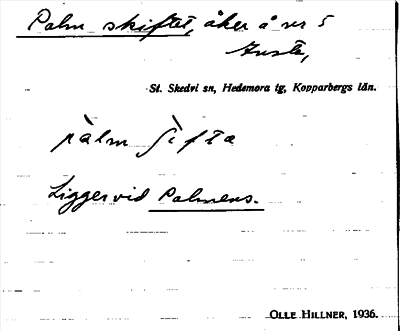 Palm skiftet, åker å nr 5
St. Skedvi sn, Hedemora tg, Kopparbergs län.
pàlm ʃìfta
Ligger vid Palmens.
OLLE HILLNER, 1936.